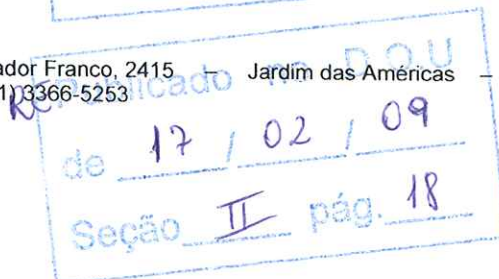 ador Franco, 2415 – Jardim das Américas –
1) 3366-5253
RePublicado no D.O.U
de 17 / 02 / 09
Seção II pág. 18